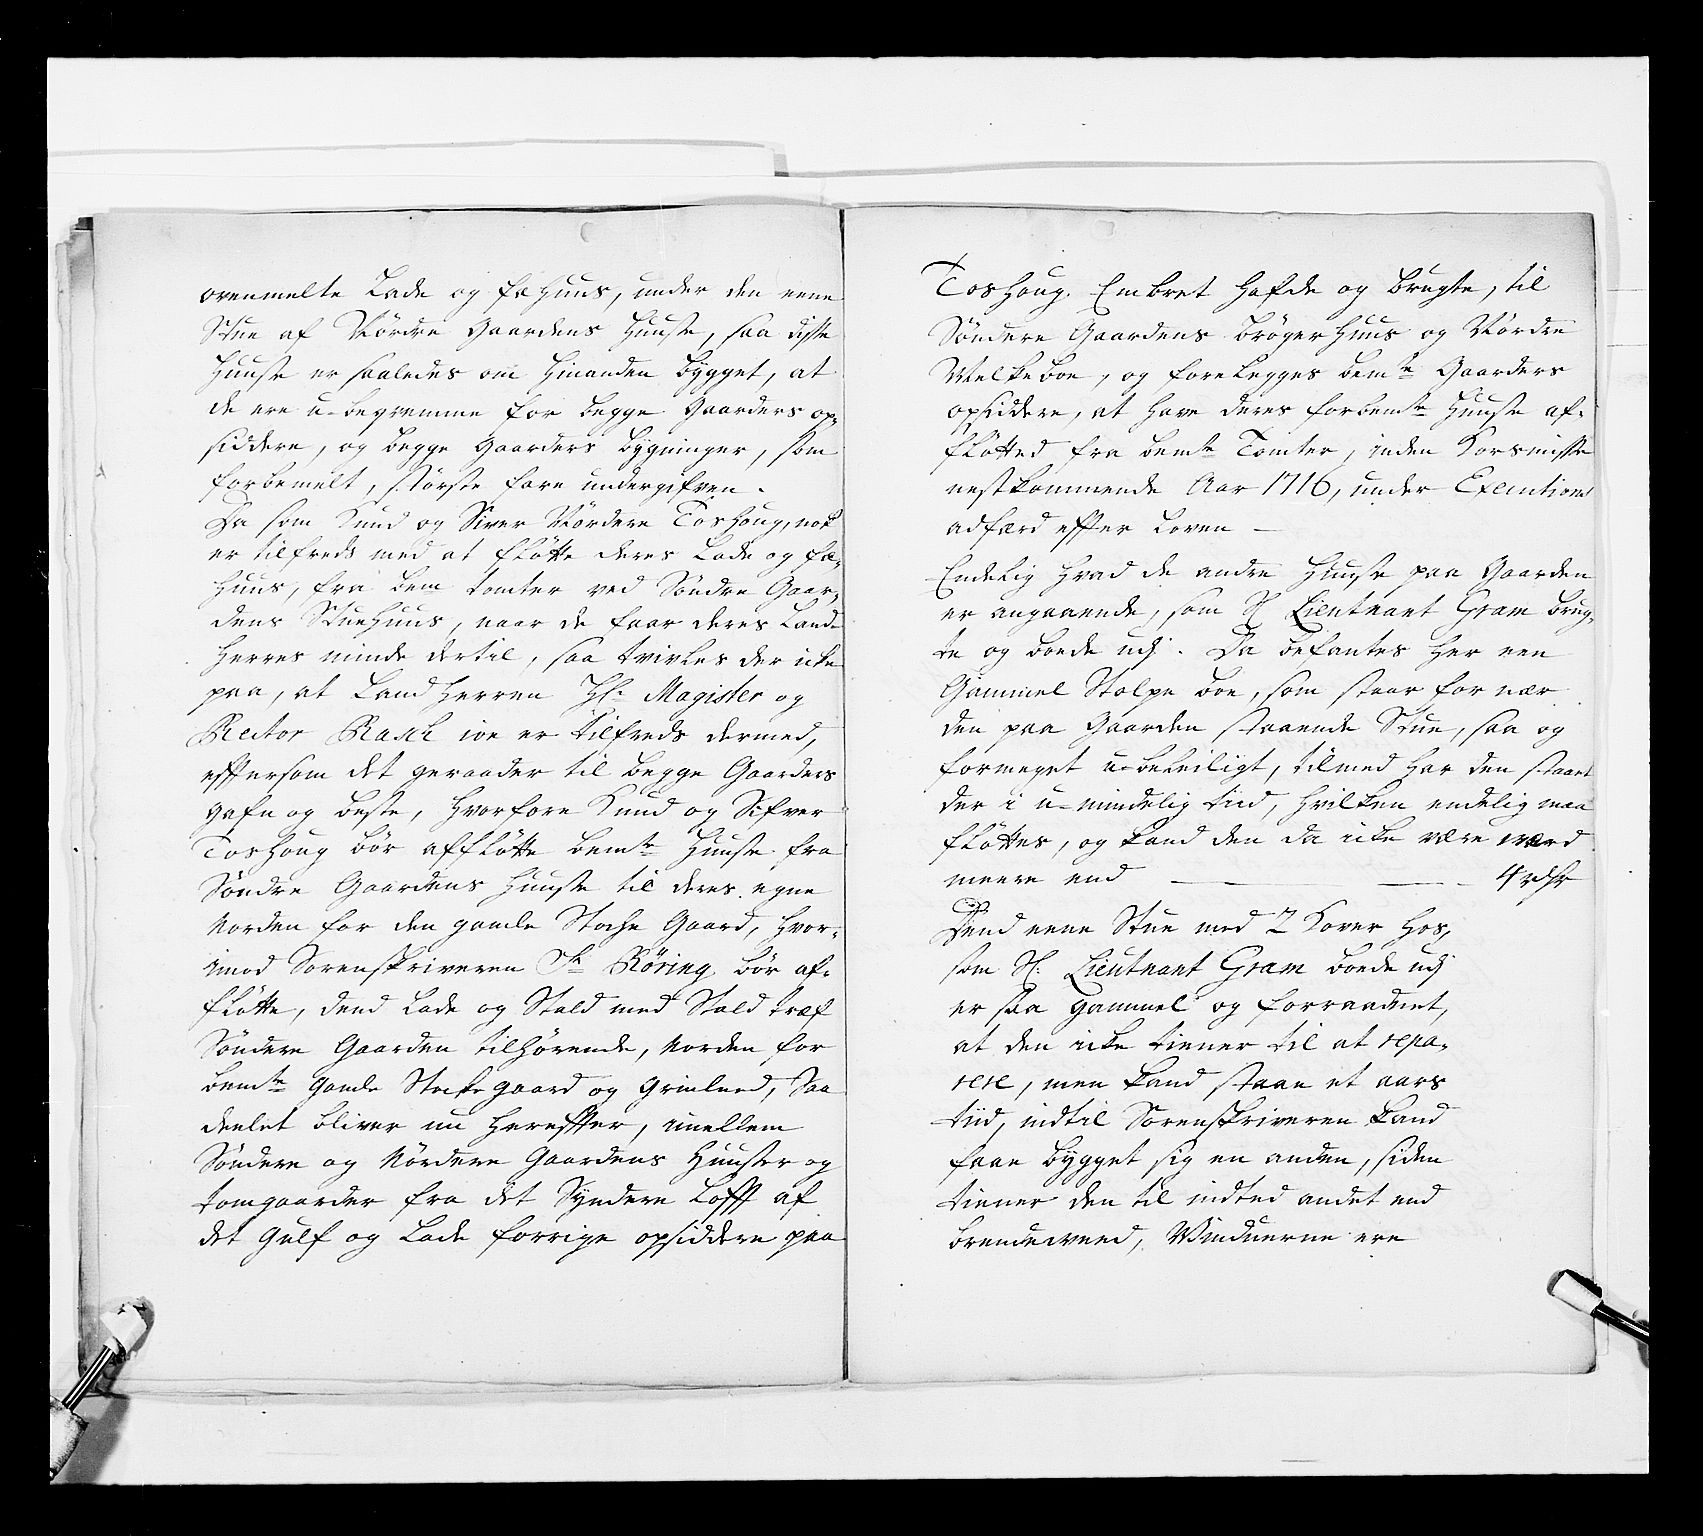 ovenmelte Lade og fæhuus, under den eene
Stue af Nördre Gaardens Huuse, saa disse
Huuse er saaledes om hinanden bÿgget, at
de ere u-beqvemme for begge Gaarders op-
siddere, og begge Gaarders bÿgninger, som
forbemelt, störste fare undergifven.
Da som Knud og Siver Nördere Toshoug, nok
er tilfreds med at flötte deres Lade og fæ-
huus, fra bem tomter ved Söndre Gaar-
dens Stuehuus, naar de faar deres Land-
herres minde dertil, saa tvivles der icke
paa, at Landherren Hr. Magister og
Rector Rasch ioe er tilfreds dermed,
efftersom det geraader til begge Gaarders
gafn og beste, hvorfore Knud og Sifver
Toshoug bör afflötte bemte Huuse fra
Söndre Gaardens Huuse til deres egne
Norden for den gamle Stocke Gaard, hvor-
imod Sorenskriveren Sr Röring bör af-
flötte, dend Lade og Stald med Stald træf
Söndere Gaarden tilhörende, Norden for
bemte gamle Stockegaard og Grimlaad, Saa
deelet bliver nu hereffter, imellem
Söndere og Nördere Gaardens Huuser og
tomgaarder fra det Sÿndere Lofft af
det Gulf og Lade forrige opsiddere paa
Toshoug. Embret hafde og brugte, til
Söndere Gaardens brögerhuus og Nördre
Melkeboe, og forelegges bemte Gaarders
opsiddere, at have deres forbemte Huuse af-
flötted fra bemte Tomter, inden Korsmisse
nestkommende Aar 1716, under Executions
adfærd effter Loven —
Endelig hvad de andre Huuse paa Gaarden
er angaaende, som Sl Lieutnant Gram brug-
te og boede udj. Da befantes her een
Gammel Stolpe boe, som staar for nær
den paa Gaarden staaende Stue, saa og
formeget u-beleiligt, tilmed har den staaet
der i u-mindelig tiid, hvilken endelig maa
flöttes, og kand den da icke være værd
meere end — — 4 rdhr
Dend eene Stue med 2 Kover hos,
som Sl: Lieutnant Gram boede udj
er saa gammel og forraadnet,
at den icke tiener til at repa-
rere, men kand staae et aars
tiid, indtil Sorenskriveren kand
faae bÿgget sig en anden, siden
tiener den til indted andet end
brendeveed, Vinduerne ere